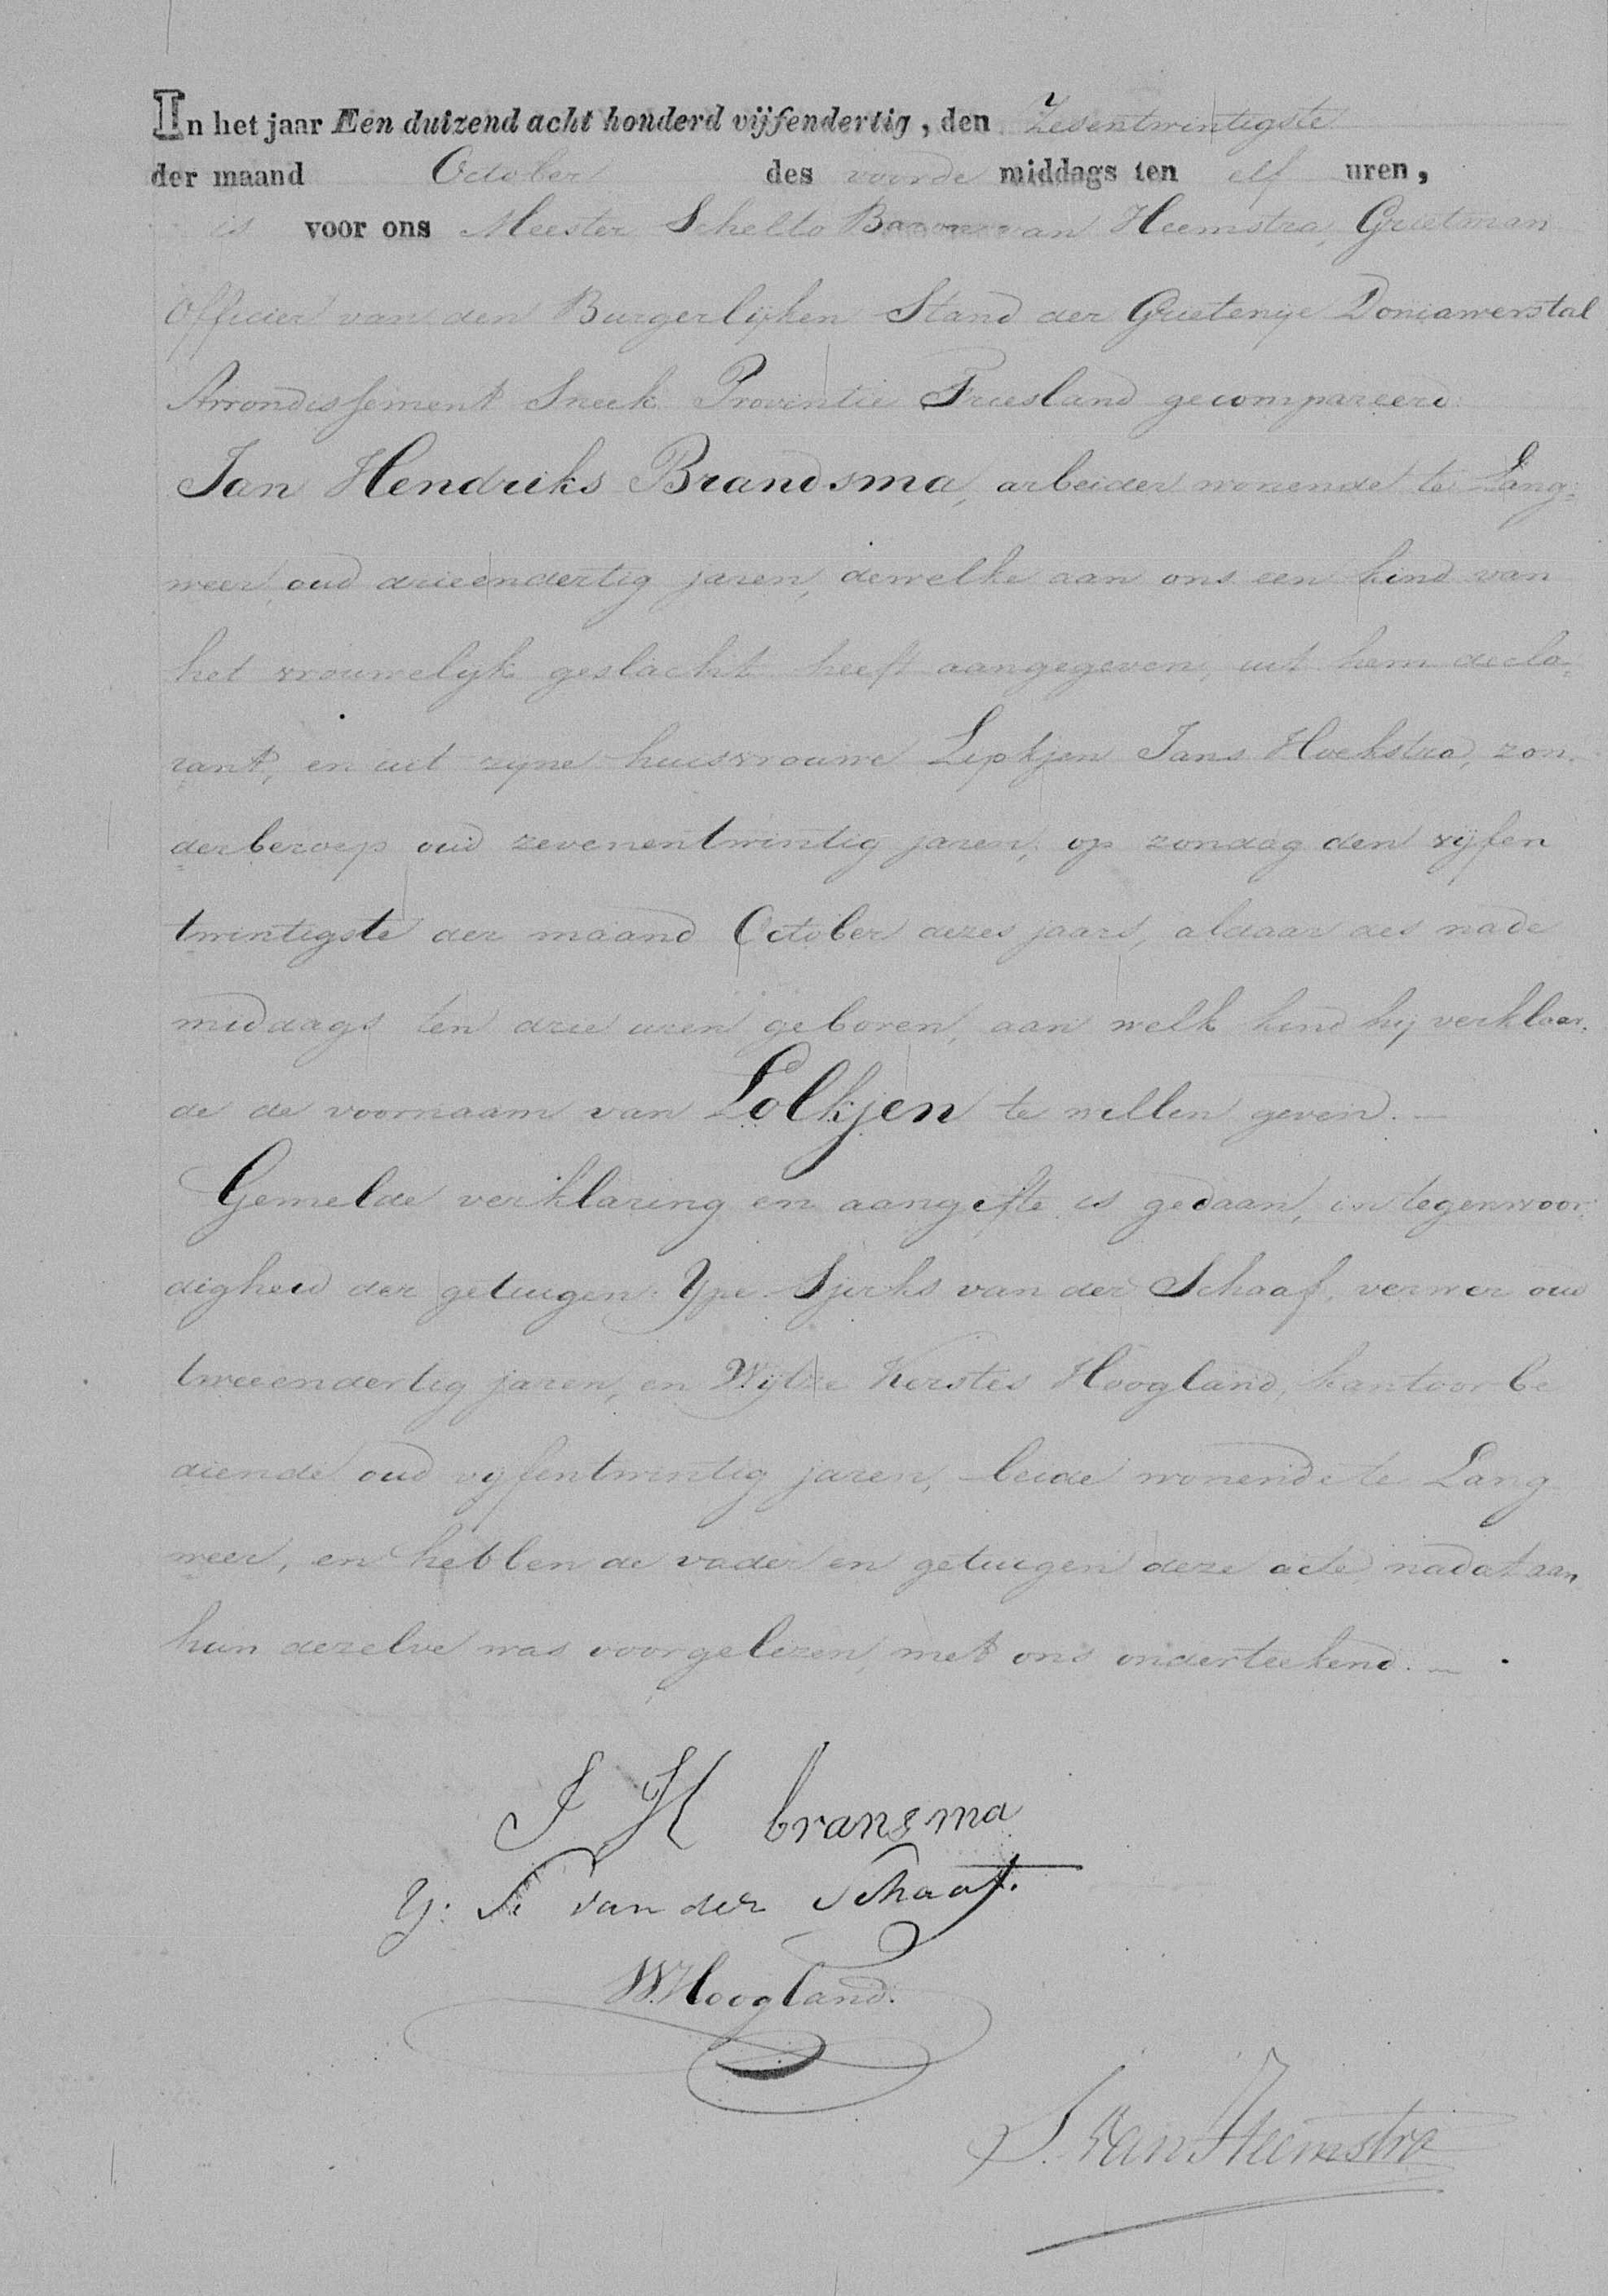 In het jaar Een duizend acht honderd vijfendertig, den Zesentwintigste
der maand October des voorde middags ten elf uren,
is voor ons Meester Schelto Baron van Heemstra, Grietman
Officier van den Burgerlijken Stand der Grietenije Doniawerstal
Arrondissement Sneek Provintie Friesland gecompareerd
Jan Hendriks Brandsma, arbeider wonende te Lang=
weer, oud drieendertig jaren, dewelke aan ons een kind van
het vrouwelijk geslacht heeft aangegeven, uit hem decla=
rant, en uit zyne huisvrouwe Lipkjen Jans Hoekstra, zon=
der beroep oud zevenentwintig jaren, op zondag den vijfen
twintigste der maand October dezes jaars, aldaar des nade
middags ten drie uren geboren, aan welk kind hij verklaar=
de de voornaam van Lolkjen te willen geven. —
Gemelde verklaring en aangifte is gedaan, in tegenwoor=
digheid der getuigen: Ype Sjerks van der Schaaf, verwer oud
tweeendertig jaren, en Wijtze Kerstes Hoogland, kantoorbe
diende oud vijfentwintig jaren, beide wonende te Lang
weer, en hebben de vader en getuigen deze acte, nadat aan
hun dezelve was voorgelezen, met ons onderteekend. —
J H bransma
Y: S. van der Schaaf.
W. Hoogland.
S. van Heemstra